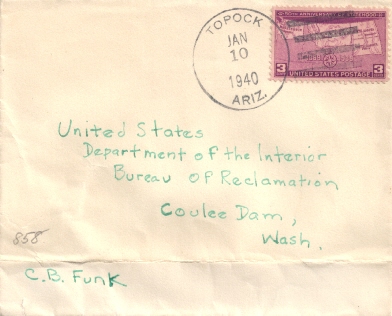 TOPOCK
JAN
10
1940
ARIZ.
50TH ANNIVERSARY OF STATEHOOD
3 UNITED STATES POSTAGE 3
United States
Department of the Interior
Bureau of Reclamation
Coulee Dam,
Wash.
858
C.B. Funk